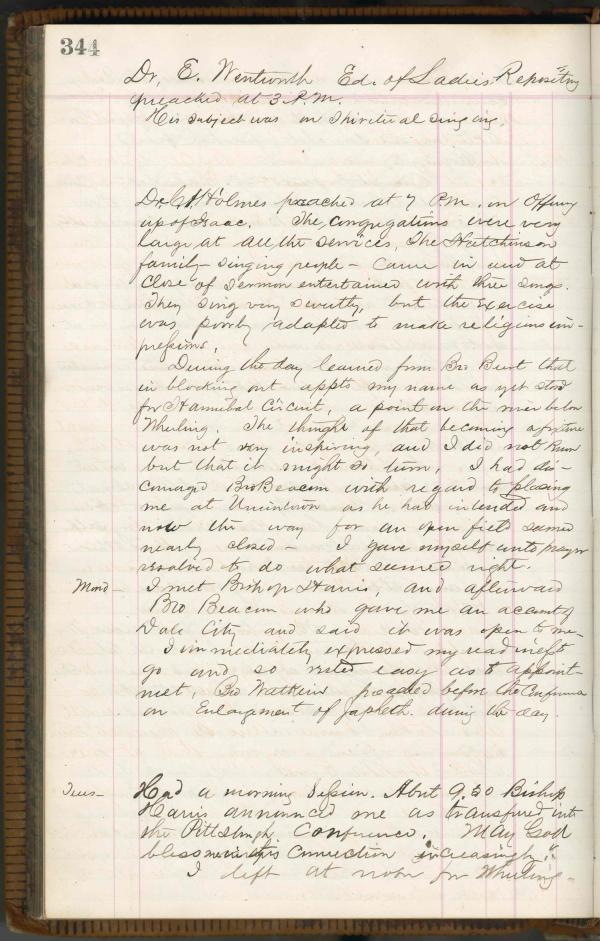 344
Dr. E. Wentworth Ed. of Ladies Repository
preached at 3 P.M.
His subject was on Spiritual singing.
Dr. Holmes preached at 7 P.M. on Offering
up of Isaac. The congregations were very
large at all the services, The Hutchinson
family - singing people - came in and at
close of sermon entertained with three songs.
They sing very sweetly, but the exercise
was poorly adapted to make religious im-
pressions.
During the day learned from Bro Bent that
in blocking out appts my name as yet stood
for Hannibal Circuit, a point on the river below
Wheeling. The thought of that becoming a fixture
was not very inspiring, and I did not know
but that it might so turn. I had dis-
couraged Bro Beacom with regard to placing
me at Uniontown as he had intended and
now the way for an open field seemed
nearly closed - I gave myself unto prayer
resolved to do what seemed right.
Mond - I met Bishop Harris, and afterward
Bro Beacom who gave me an account of
Dale City and said it was open to me -
I immediately expressed my readiness to
go and so rested easy as to appoint-
ment. Bro Watkins preached before the Conference
on Enlargement of Japheth during the day.
Tues - Had a morning Session. About 9.30 Bishop
Harris announced me as transfered into
the Pittsburgh Conference. May God
bless me in this connection increasingly.
I left at noon for Wheeling -